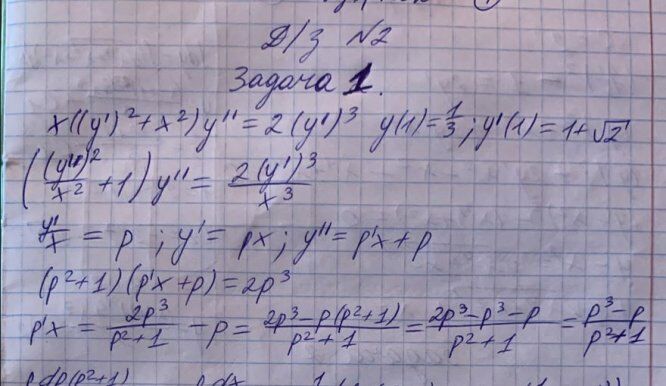 Д/З №2
Задача 1.
x((y')²+x²)y''=2(y')³ y(1)=1/3; y'(1)=1+√2
((y')²/x²+1)y''=2(y')³/x³
y'/x=p; y'=px; y''=p'x+p
(p²+1)(p'x+p)=2p³
p'x=2p³/(p²+1)-p=(2p³-p(p²+1))/(p²+1)=(2p³-p³-p)/(p²+1)=(p³-p)/(p²+1)
dp(p²+1) dx 1